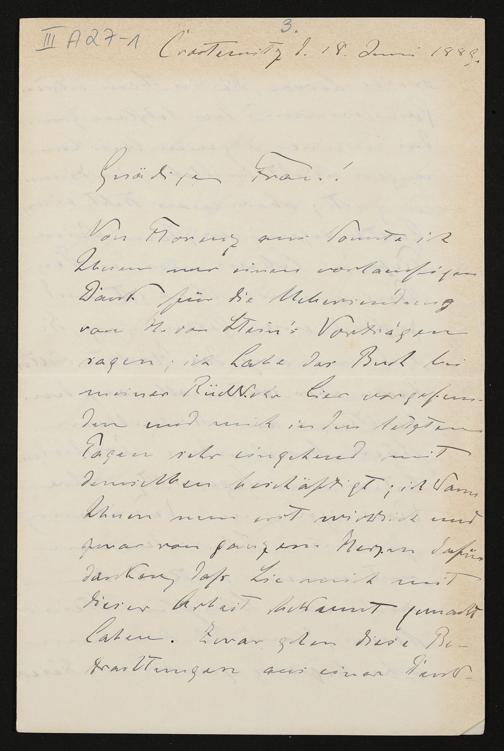 3.
III A 27-1
d. 18. Juni 188
Gnädige Frau!
Von Florenz aus konnte ich
Ihnen nur einen vorläufigen
Dank für die Uebersendung
von H. von Stein's Vorträgen
sagen; ich habe das Buch bei
meiner Rückkehr hier vorgefun-
den und mich in den letzten
Tagen sehr eingehend mit
demselben beschäftigt; ich kann
Ihnen nun erst wirklich und
zwar von ganzem Herzen dafür
danken, daß Sie mich mit
dieser Arbeit bekannt gemacht
haben. Zwar gehen diese Be-
trachtungen aus einer Denk-